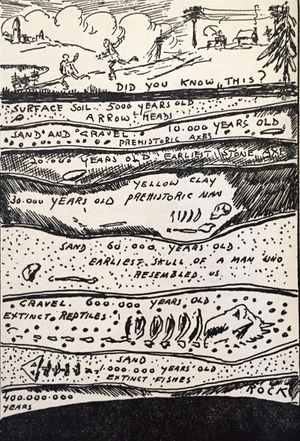 DID YOU KNOW THIS?
SURFACE SOIL. 5000 YEARS OLD
ARROW HEADS
SAND AND GRAVEL. 10.000 YEARS OLD
PREHISTORIC AXES
20.000 YEARS OLD EARLIEST STONE AXE
YELLOW CLAY
30.000 YEARS OLD PREHISTORIC MAN
SAND 60.000 YEARS OLD
EARLIEST SKULL OF A MAN WHO
RESEMBLED US
GRAVEL. 600.000 YEARS OLD
EXTINCT REPTILES
SAND
1.000.000 YEARS OLD
EXTINCT FISHES
ROCK
400.000.000
YEARS